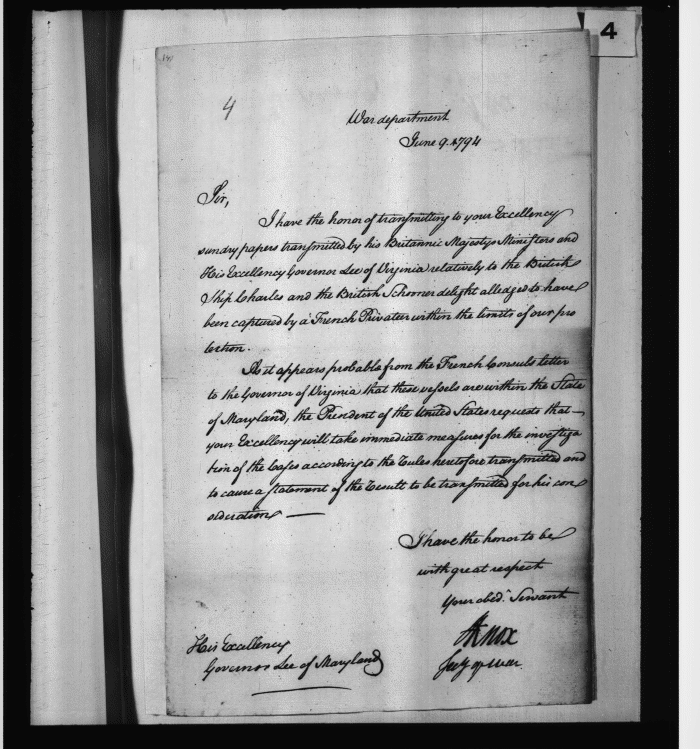 4
4
War department
June 9. 1794
Sir,
I have the honor of transmitting to your Excellency
sundry papers transmitted by his Britannic Majestys Ministers and
His Excellency Governor Lee of Virginia relatively to the British
Ship Charles and the British Schooner delight alledged to have
been captured by a French Privateer within the limits of our pro
tection.
As it appears probable from the French Consuls letter
to the Governor of Virginia that these vessels are within the State
of Maryland, the President of the United States requests that
your Excellency will take immediate measures for the investiga
tion of the Cases according to the Rules heretofore transmitted and
to cause a statement of the Result to be transmitted for his con
sideration
I have the honor to be
with great respect
Your obed.t Servant
HKnox
Secy of war
His Excellency
Governor Lee of Maryland